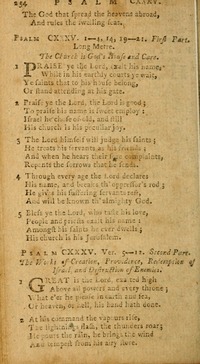 254 P S A L M CXXXV.
The God that spread the heavens abroad,
And rules the swelling seas.
PSALM CXXXV. 1—4, 14, 19—21. First Part.
Long Metre.
The Church is God's House and Care.
1 PRAISE ye the Lord, exalt his name,
While in his earthly courts ye wait,
Ye saints that to his house belong,
Or stand attending at his gate.
2 Praise ye the Lord, the Lord is good;
To praise his name is sweet employ:
Israel he chose of old, and still
His church is his peculiar joy.
3 The Lord himself will judge his saints;
He treats his servants as his friends;
And when he hears their sore complaints,
Repents the sorrows that he sends.
4 Through every age the Lord declares
His name, and breaks th' oppressor's rod;
He gives his suffering servants rest,
And will be known th' almighty God.
5 Bless ye the Lord, who taste his love,
People and priests exalt his name:
Amongst his saints he ever dwells;
His church is his Jerusalem.
PSALM CXXXV. Ver. 5—12. Second Part.
The Works of Creation, Providence, Redemption of
Israel, and Destruction of Enemies.
1 GREAT is the Lord, exalted high
Above all powers and every throne;
Whate'er he please in earth and sea,
Or heaven, or hell, his hand hath done.
2 At his command the vapours rise,
The lightnings flash, the thunders roar;
He pours the rain, he brings the wind
And tempest from his airy store.